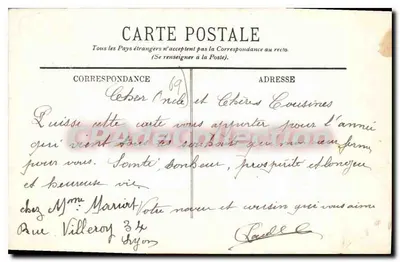 CARTE POSTALE
Tous les Pays étrangers n'acceptent pas la Correspondance au recto.
(Se renseigner à la Poste).
CORRESPONDANCE
ADRESSE
69
Cher Oncle et Chères Cousines
Puisse cette carte vous apporter pour l'année
qui vient les souhaits que mon cœur forme
pour vous. Santé bonheur, prospérité et longue
et heureuse vie
chez Mme Mariot Votre neveu et cousin qui vous aime
Rue Villeroy 34
Lyon